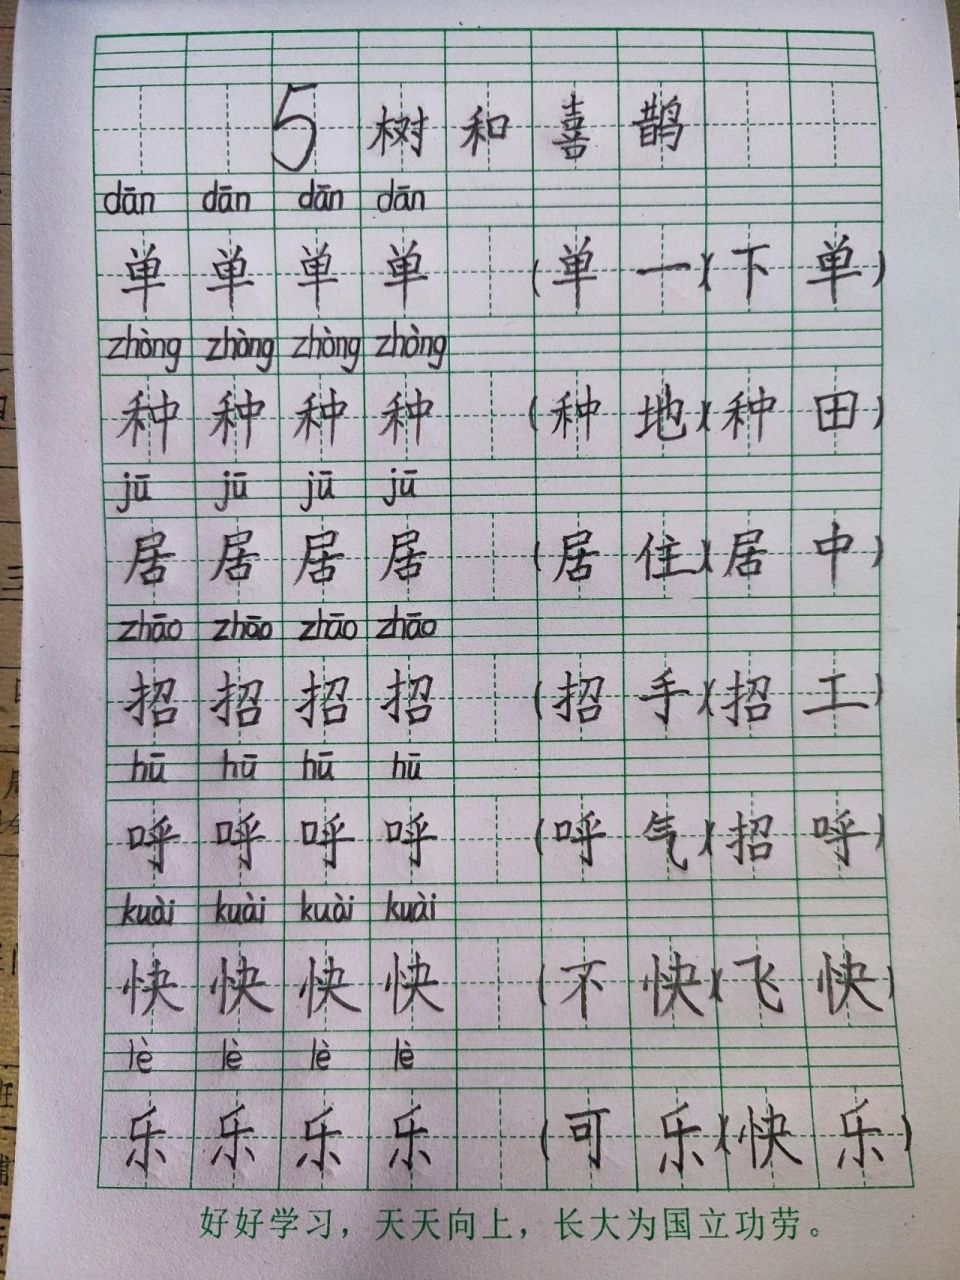 5 树和喜鹊
dān dān dān dān
单 单 单 单 (单一)(下单)
zhòng zhòng zhòng zhòng
种 种 种 种 (种地)(种田)
jū jū jū jū
居 居 居 居 (居住)(居中)
zhāo zhāo zhāo zhāo
招 招 招 招 (招手)(招工)
hū hū hū hū
呼 呼 呼 呼 (呼气)(招呼)
kuài kuài kuài kuài
快 快 快 快 (不快)(飞快)
lè lè lè lè
乐 乐 乐 乐 (可乐)(快乐)
好好学习，天天向上，长大为国立功劳。